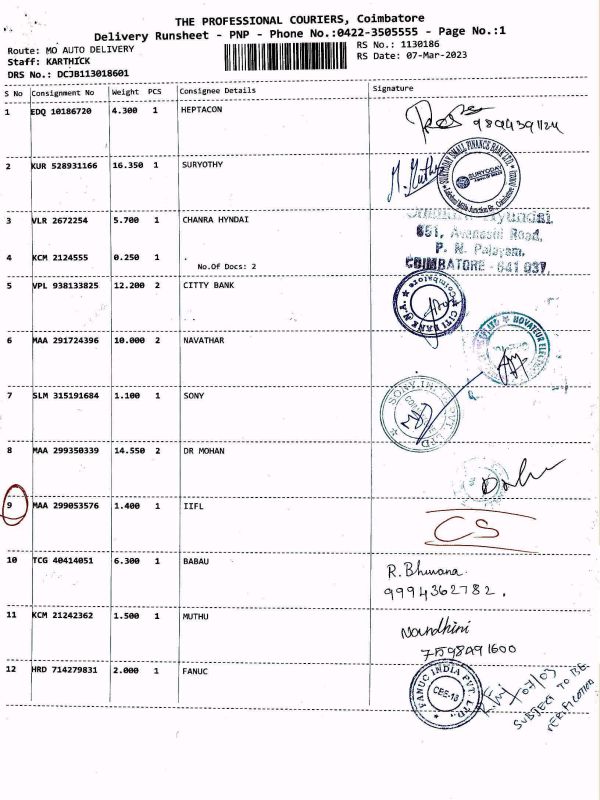 THE PROFESSIONAL COURIERS, Coimbatore
Delivery Runsheet - PNP - Phone No.:0422-3505555 - Page No.:1
Route: MO AUTO DELIVERY
RS No.: 1130186
Staff: KARTHICK
RS Date: 07-Mar-2023
DRS No.: DCJB113018601
S No Consignment No Weight PCS Consignee Details Signature
1 EDQ 10186720 4.300 1 HEPTACON
2 KUR 528931166 16.350 1 SURYOTHY
M. Muthu
SURYODAY SMALL FINANCE BANK LTD.
SURYODAY
3 VLR 2672254 5.700 1 CHANRA HYNDAI
Hyundai
651, Avanashi Road,
P. N. Palayam,
COIMBATORE - 641 037.
4 KCM 2124555 0.250 1 .
No.Of Docs: 2
5 VPL 938133825 12.200 2 CITTY BANK
CITI BANK N.A.
Coimbatore
6 MAA 291724396 10.000 2 NAVATHAR
NOVATEUR ELECTR
7 SLM 315191684 1.100 1 SONY
SONY INDIA PVT. LTD
8 MAA 299350339 14.550 2 DR MOHAN
9 MAA 299053576 1.400 1 IIFL
CS
10 TCG 40414051 6.300 1 BABAU
R. Bhuvana.
9994362782.
11 KCM 21242362 1.500 1 MUTHU
Nandhini
12 HRD 714279831 2.000 1 FANUC
FANUC INDIA PVT. LTD.,
CBE-18
07/03
SUBJECT TO BE
VERIFICATION